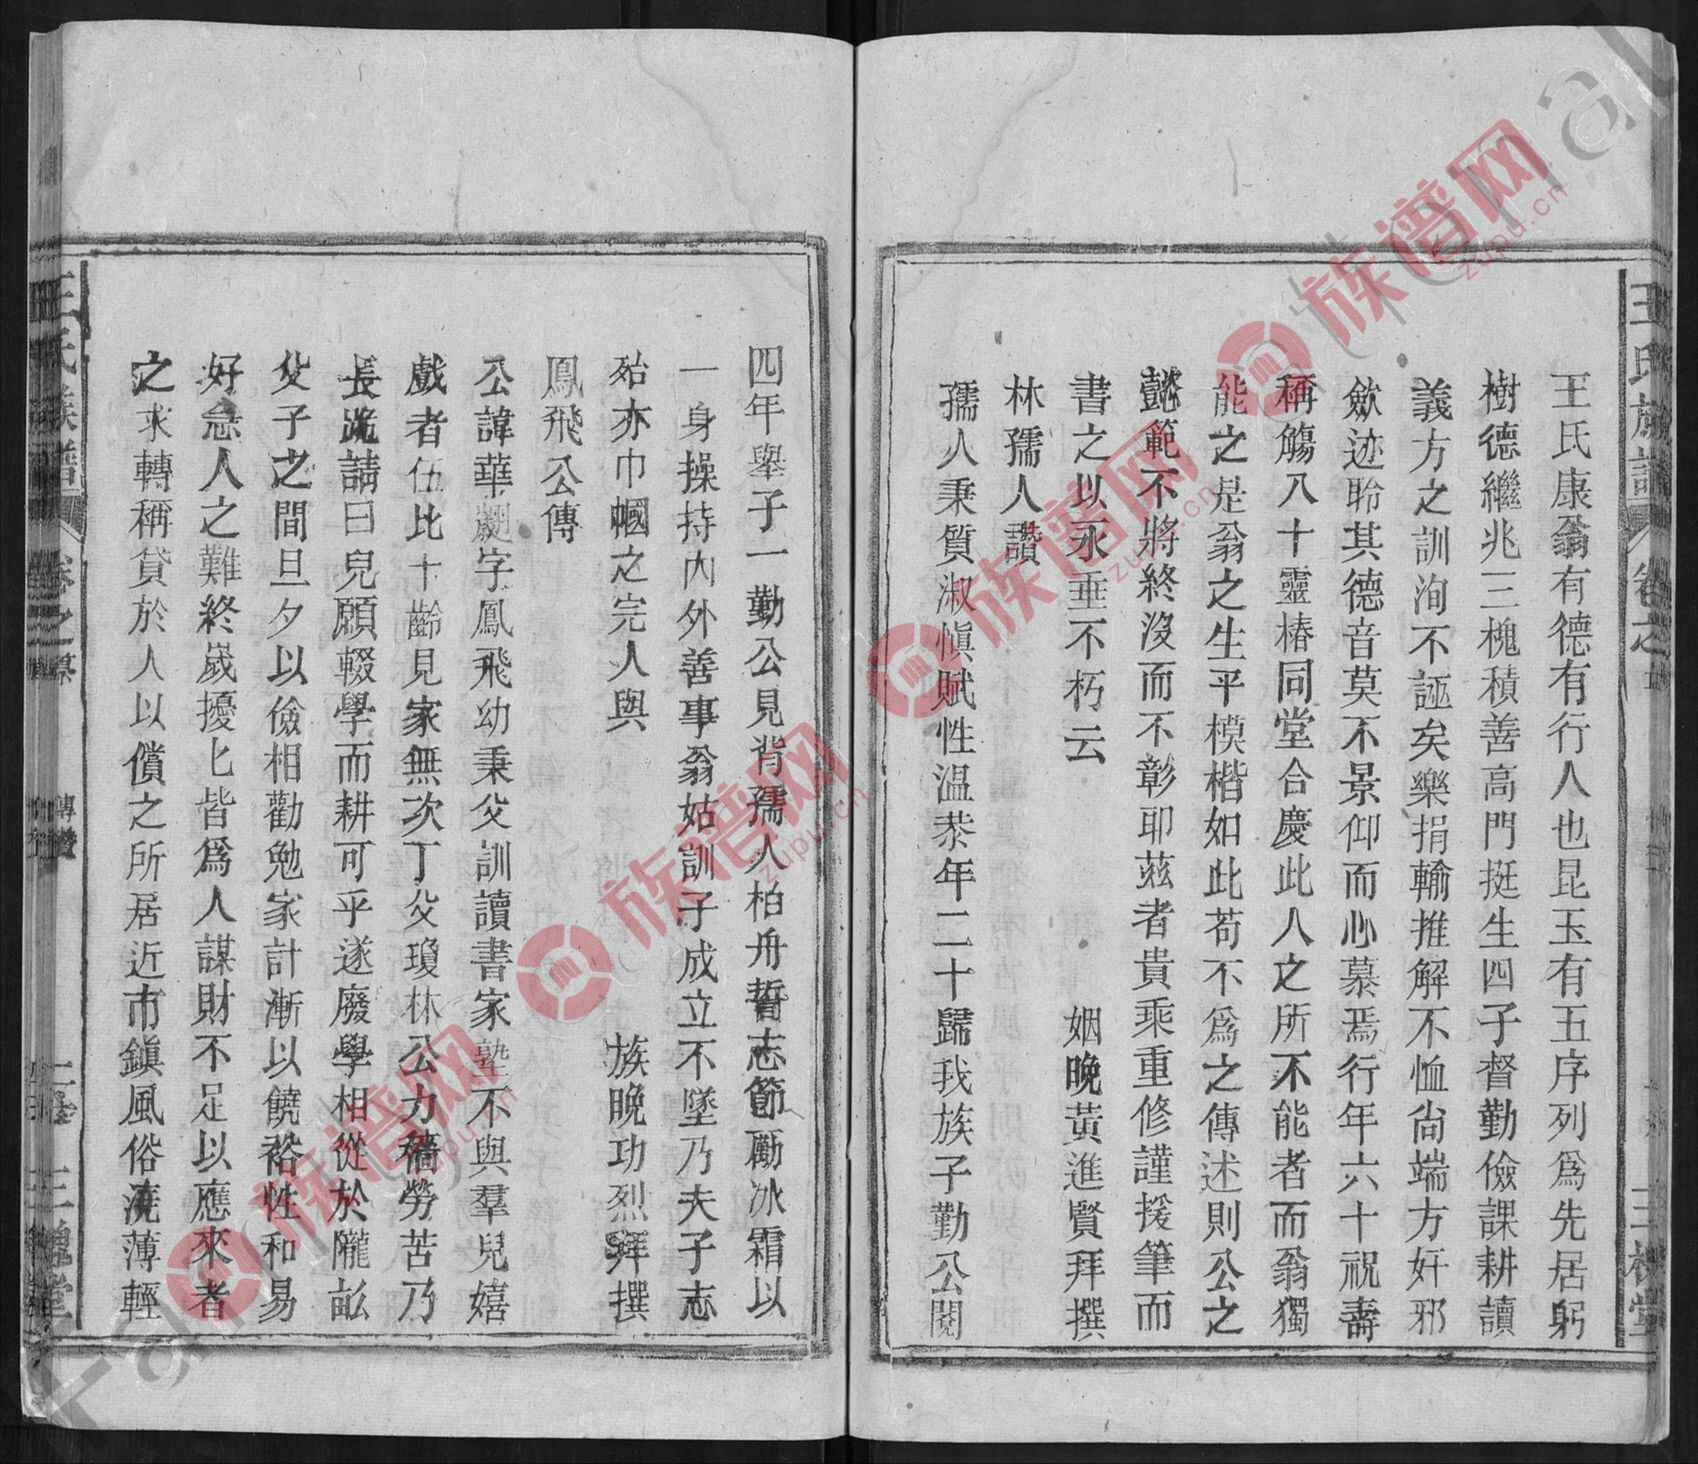 王氏族譜 卷之 三槐堂
王氏康翁有德有行人也昆玉有五序列爲先居躬
樹德繼兆三槐積善高門挺生四子督勤儉課耕讀
義方之訓洵不誣矣樂捐輸推解不恤尚端方奸邪
斂迹聆其德音莫不景仰而心慕焉行年六十祝壽
稱觴八十靈椿同堂合慶此人之所不能者而翁獨
能之是翁之生平模楷如此苟不爲之傳述則公之
懿範不將終沒而不彰耶茲者貴乘重修謹援筆而
書之以永垂不朽云 姻晚黃進賢拜撰
林孺人讚
孺人秉質淑愼賦性温恭年二十歸我族子勤公閱
四年舉子一勤公見背孺人柏舟誓志節勵冰霜以
一身操持內外善事翁姑訓子成立不墜乃夫子志
殆亦巾幗之完人與 族晚功烈拜撰
鳳飛公傳
公諱華翽字鳳飛幼秉父訓讀書家塾不與羣兒嬉
戲者伍比十齡見家無次丁父瓊林公力穡勞苦乃
長跪請曰兒願輟學而耕可乎遂廢學相從於隴畝
父子之間旦夕以儉相勸勉家計漸以饒裕性和易
好急人之難終歲擾匕皆爲人謀財不足以應來者
之求轉稱貸於人以償之所居近市鎮風俗澆薄輕
王氏族譜 卷之 傳讚 三槐堂
族谱网 zupu.cn
族谱网 zupu.cn
族谱网 zupu.cn
族谱网 zupu.cn